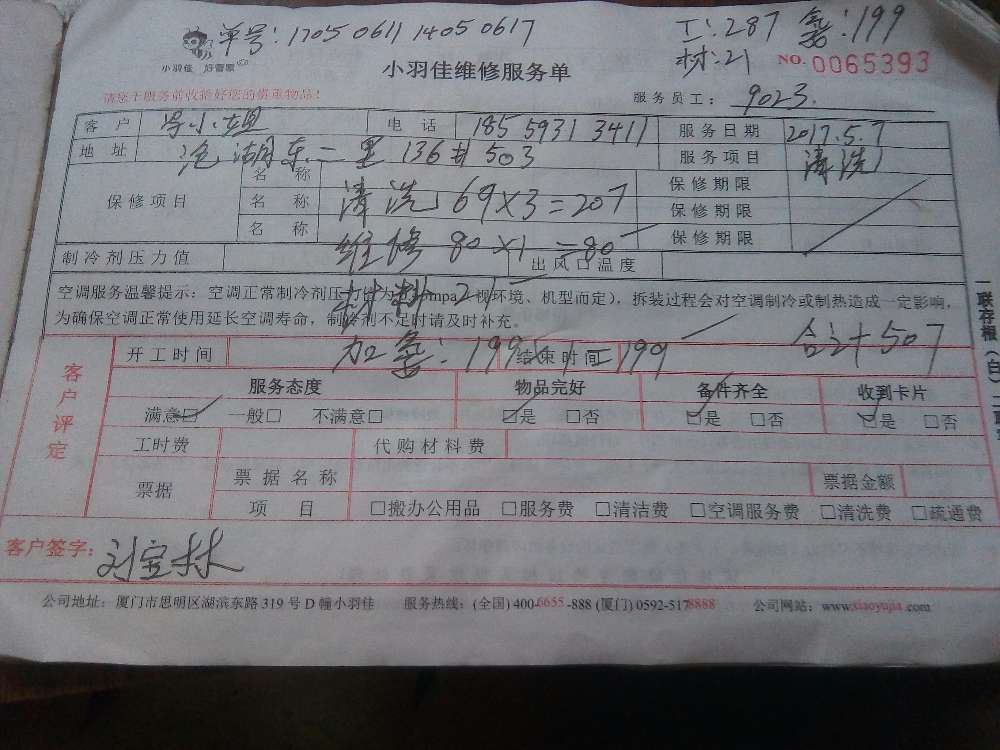 单号: 1705 0611 1405 0617
工: 287 氟: 199
材: 21
NO. 0065393
小羽佳 好管家
小羽佳维修服务单
请您于服务前收拾好您的贵重物品!
服务员工: 9023.
客户 小姐 电话 185 5931 3411 服务日期 2017.5.7
地址 湖东二里 136# 503 服务项目 清洗
保修项目
名称 保修期限
名称 清洗 69×3=207 保修期限
名称 维修 80×1=80 保修期限
制冷剂压力值 出风口温度
材料 21
空调服务温馨提示: 空调正常制冷剂压力 mpa 视环境、机型而定), 拆装过程会对空调制冷或制热造成一定影响,
为确保空调正常使用延长空调寿命, 制冷剂不足时请及时补充。
加氟: 199×1=199 合计 507
客户评定
开工时间 结束时间
服务态度 物品完好 备件齐全 收到卡片
满意☑ 一般□ 不满意□ ☑是 □否 ☑是 □否 ☑是 □否
工时费 代购材料费
票据 票据名称 票据金额
项目 □搬办公用品 □服务费 □清洁费 □空调服务费 □清洗费 □疏通费
客户签字: 刘宝林
公司地址: 厦门市思明区湖滨东路 319 号 D 幢小羽佳 服务热线: (全国) 400-6655-888 (厦门) 0592-5178888 公司网站: www.xiaoyujia.com
一联存根(白)